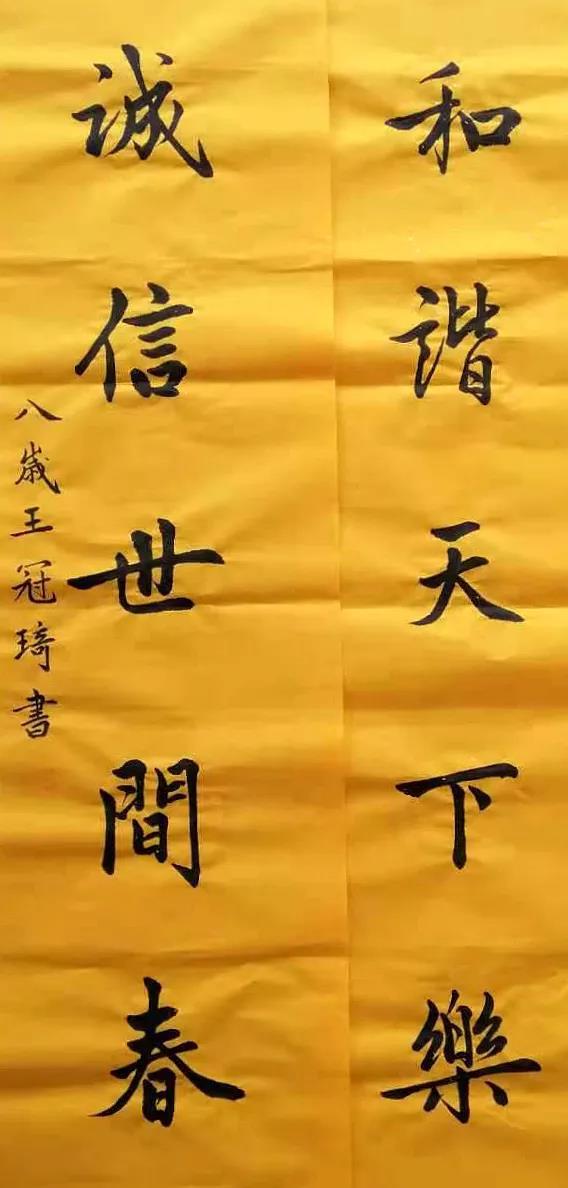 和諧天下樂
誠信世間春
八歲王冠琦書